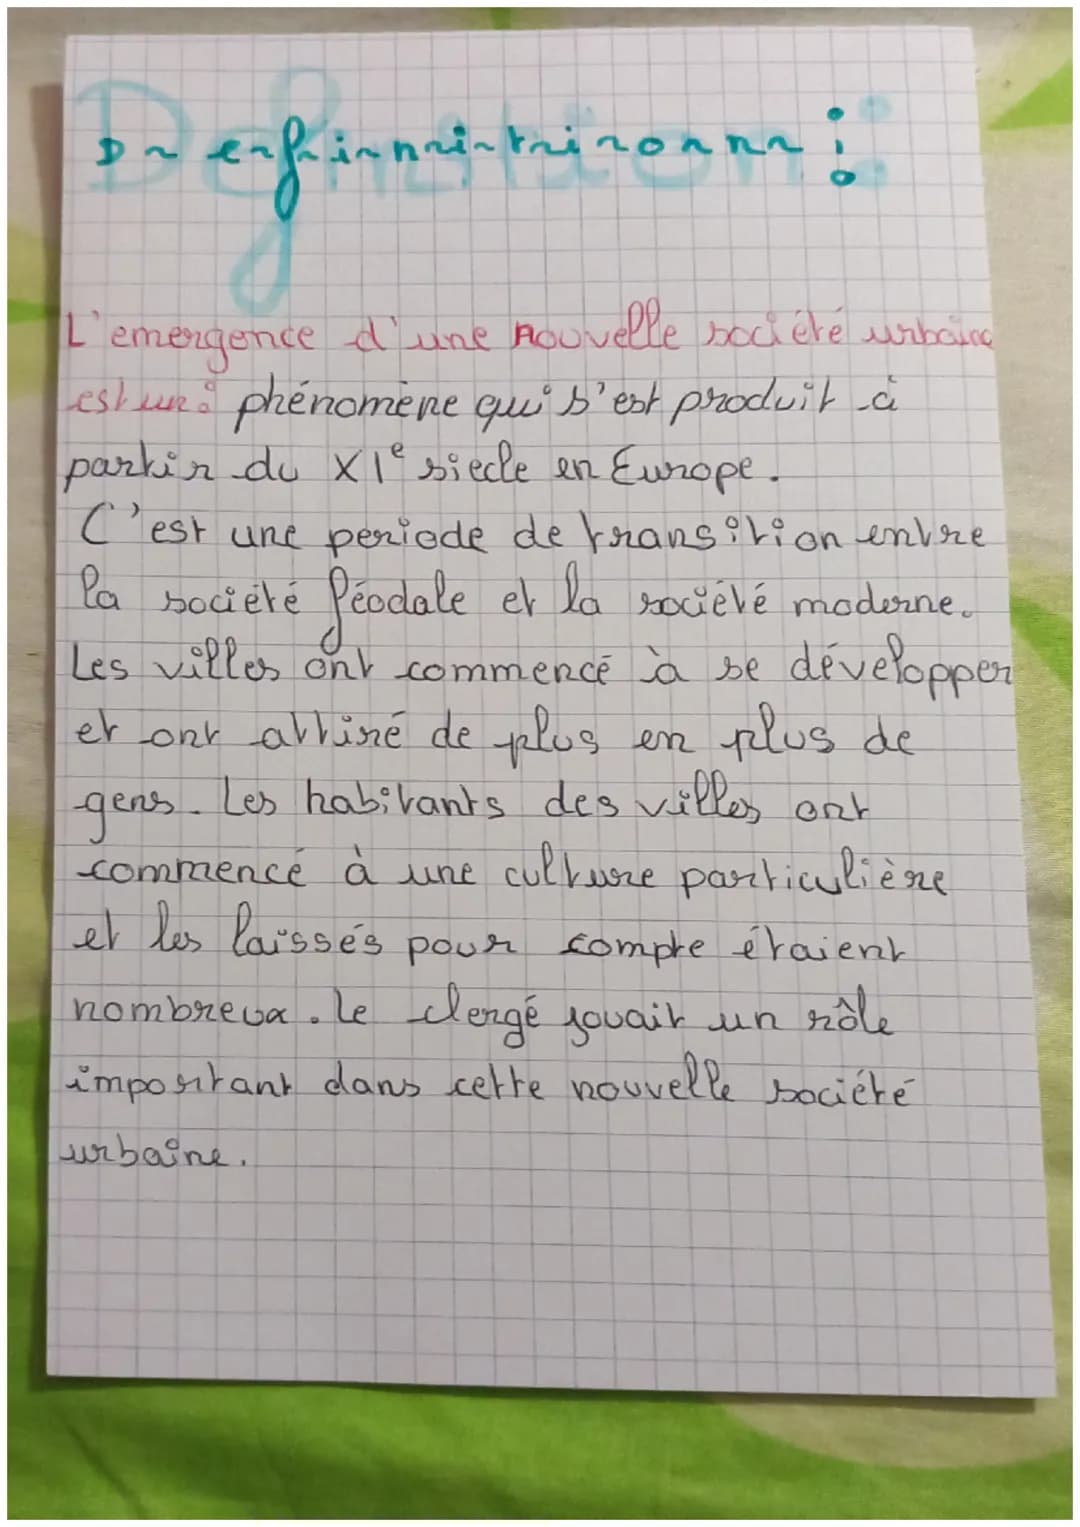 Definition :
L'emergence d'une nouvelle société urbaine
est un : phénomène qui s'est produit à
partir du XIe siecle en Europe.
C'est une periode de transition entre
la société féodale et la société moderne.
Les villes ont commencé à se développer
et ont attiré de plus en plus de
gens. Les habitants des villes ont
commencé à une culture particulière
et les laissés pour compte étaient
nombreux. le clergé jouait un rôle
important dans cette nouvelle société
urbaine.